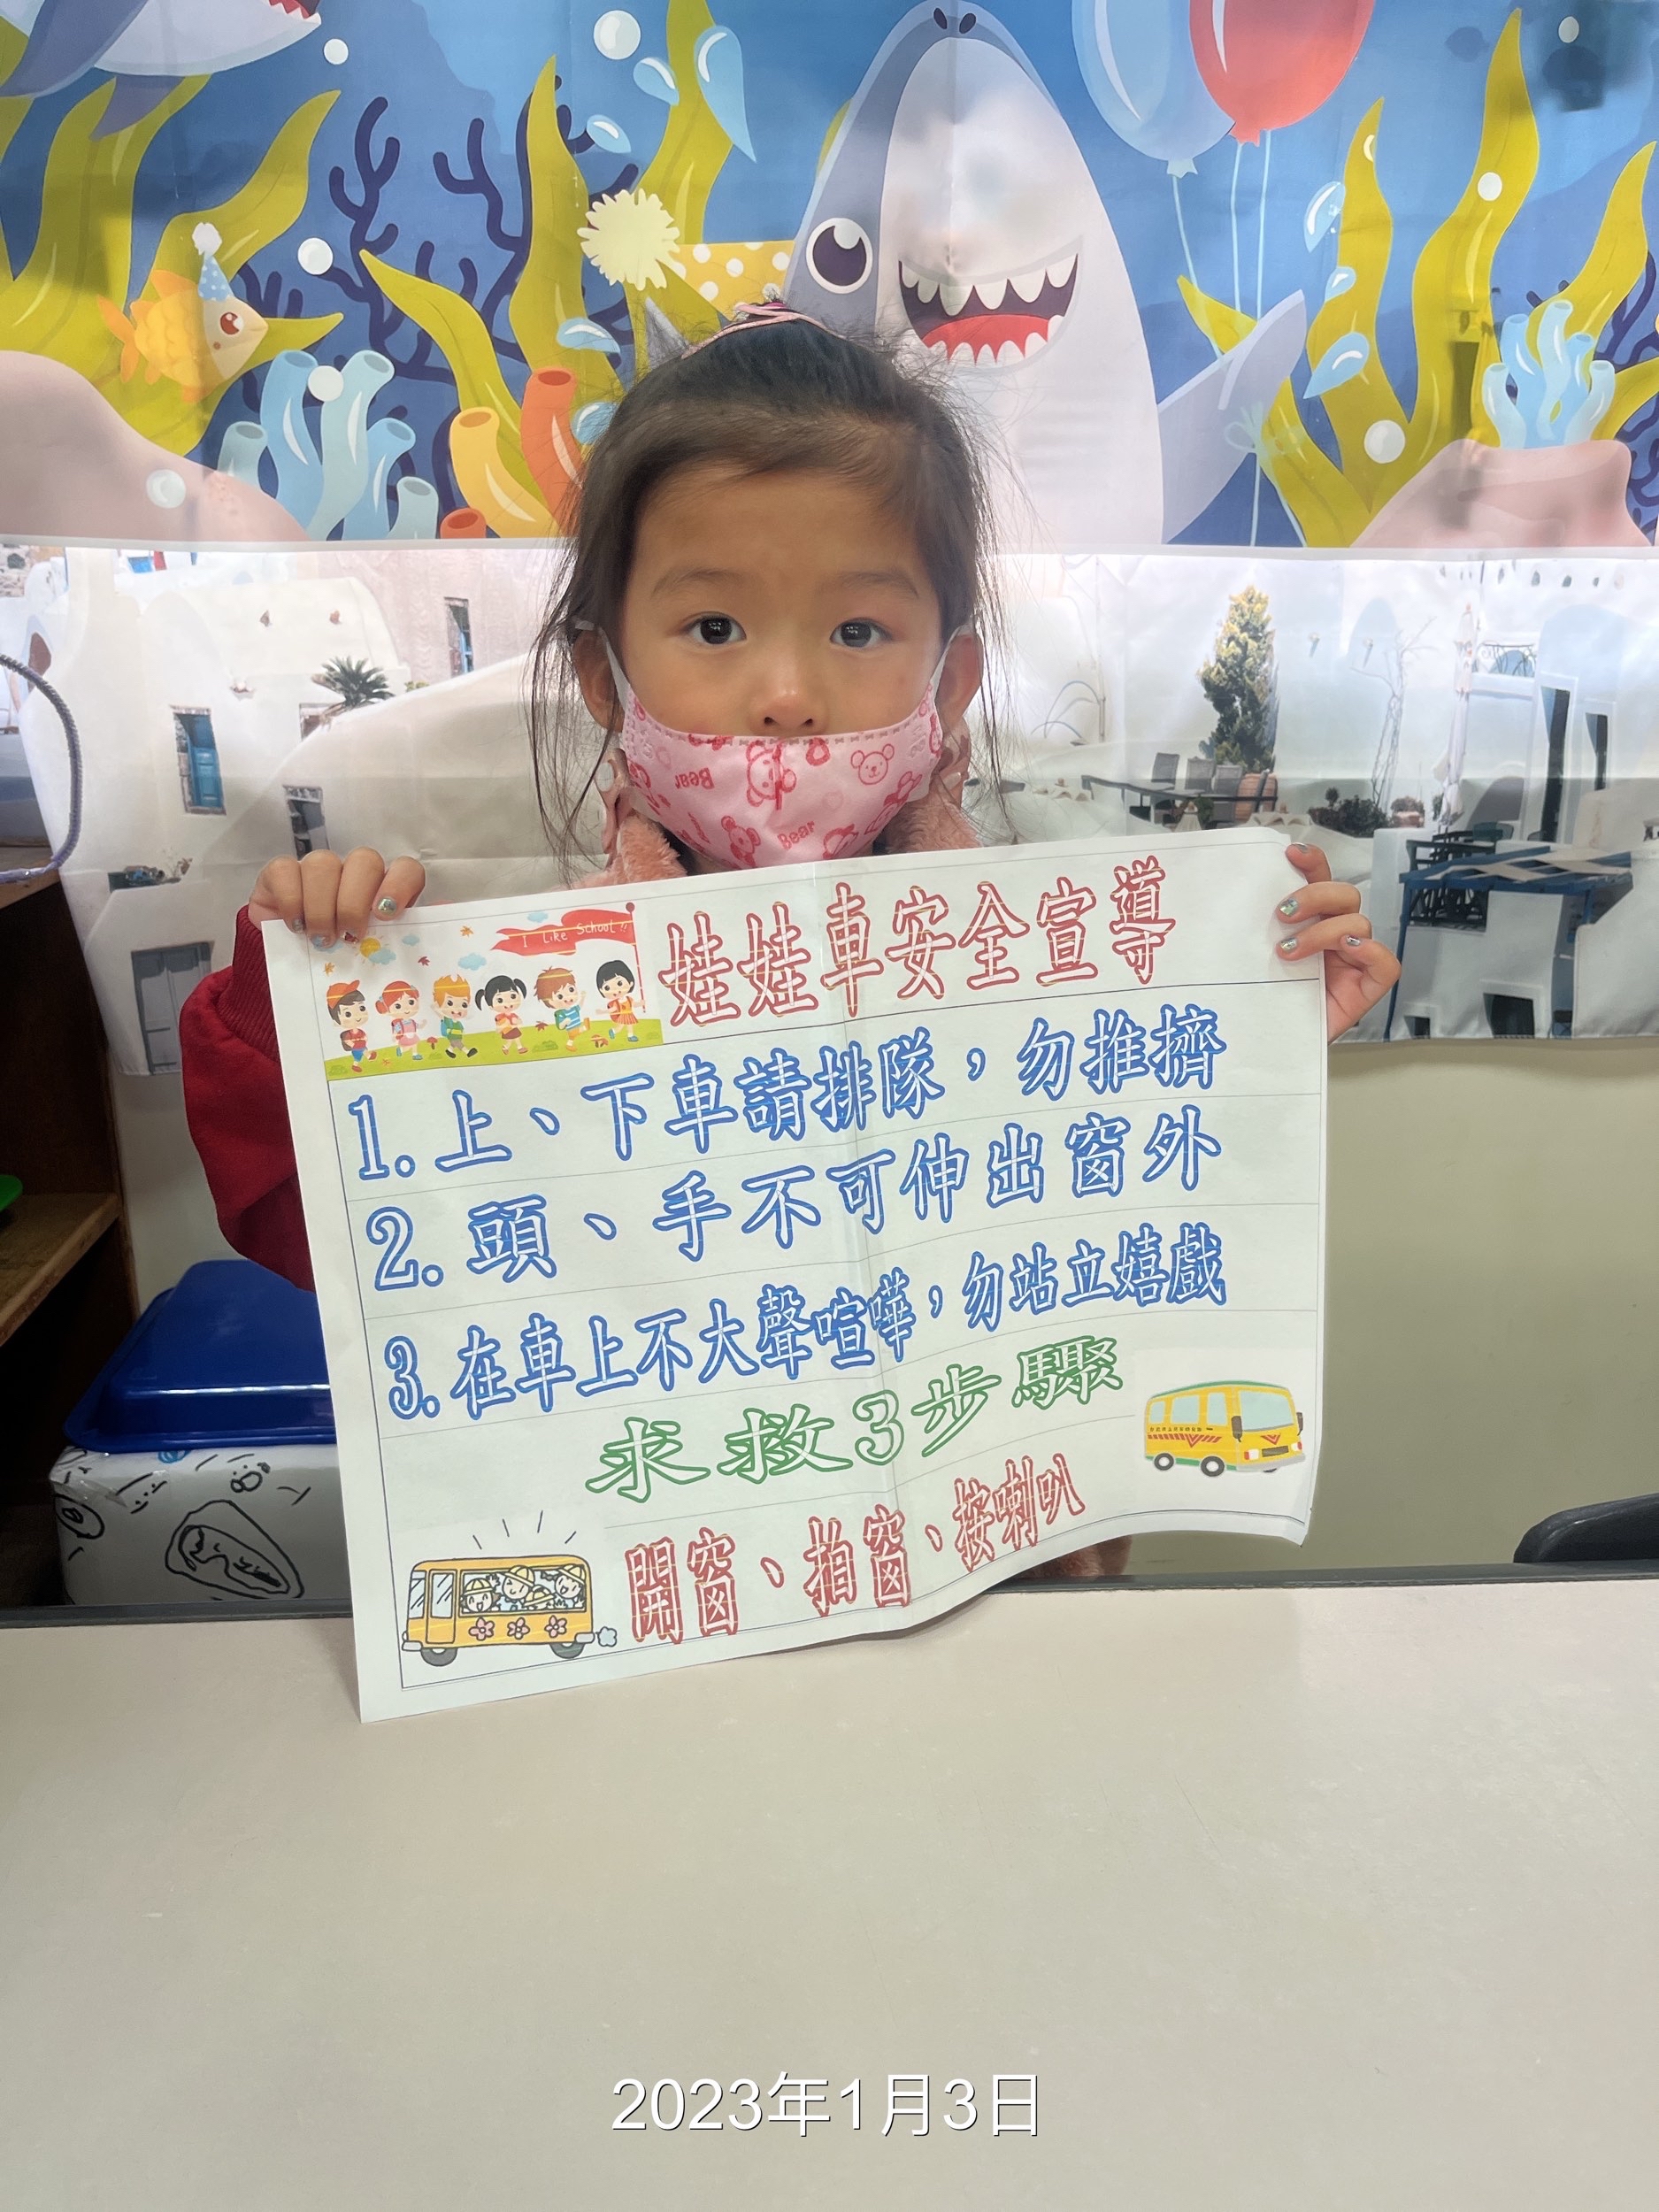 I Like School!!
娃娃車安全宣導
1.上、下車請排隊，勿推擠
2.頭、手不可伸出窗外
3.在車上不大聲喧嘩，勿站立嬉戲
求救3步驟
開窗、拍窗、按喇叭
Bear
Bear
2023年1月3日